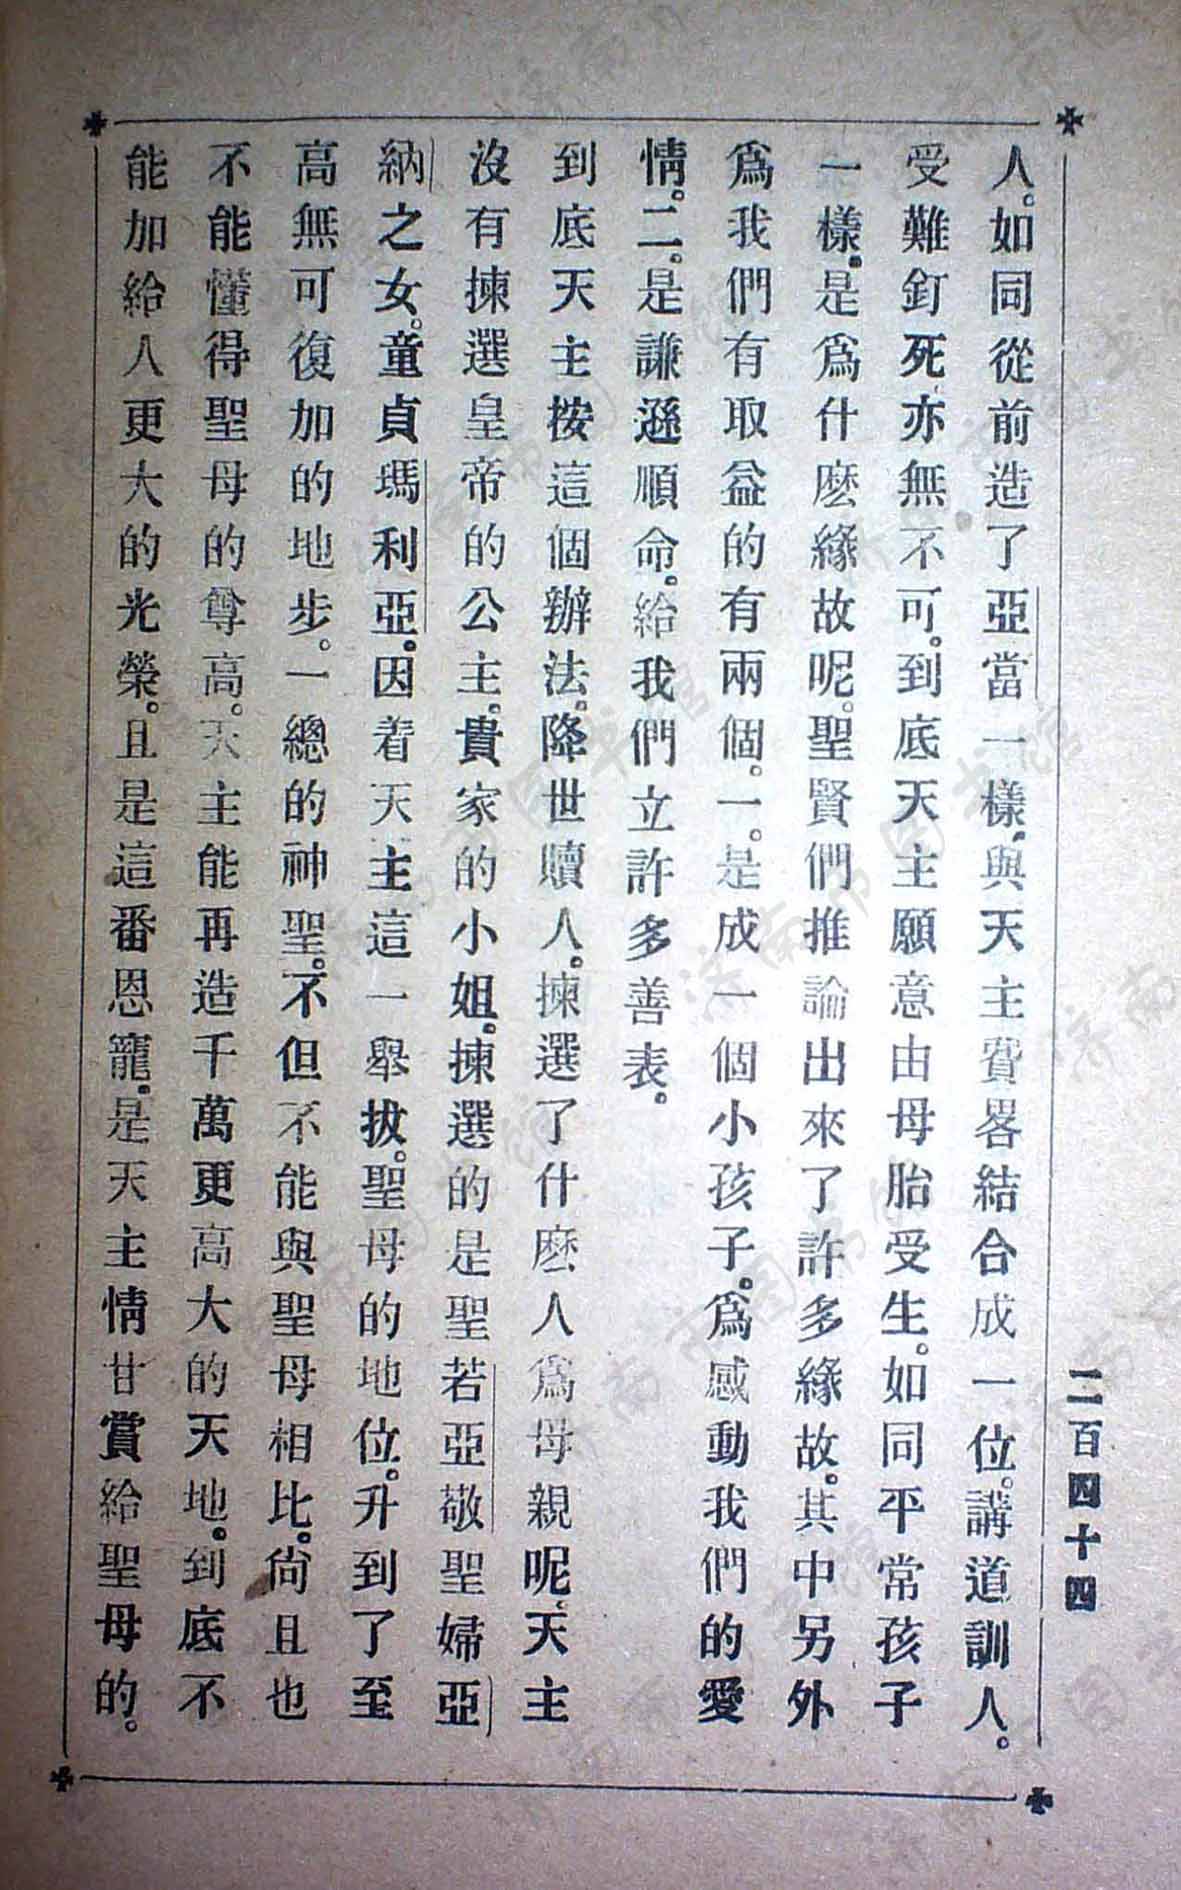 人。如同從前造了亞當一樣。與天主費畧結合成一位。講道訓人。
受難釘死、亦無不可。到底天主願意由母胎受生。如同平常孩子
一樣。是爲什麽緣故呢。聖賢們推論出來了許多緣故。其中另外
爲我們有取益的有兩個。一。是成一個小孩子。爲感動我們的愛
情。二。是謙遜順命。給我們立許多善表。
到底天主按這個辦法。降世贖人。揀選了什麽人爲母親呢。天主
沒有揀選皇帝的公主。貴家的小姐。揀選的是聖若亞敬聖婦亞
納之女。童貞瑪利亞。因着天主這一舉拔。聖母的地位。升到了至
高無可復加的地步。一總的神聖。不但不能與聖母相比。尙且也
不能懂得聖母的尊高。天主能再造千萬更高大的天地。到底不
能加給人更大的光榮。且是這番恩寵。是天主情甘賞給聖母的。
二百四十四